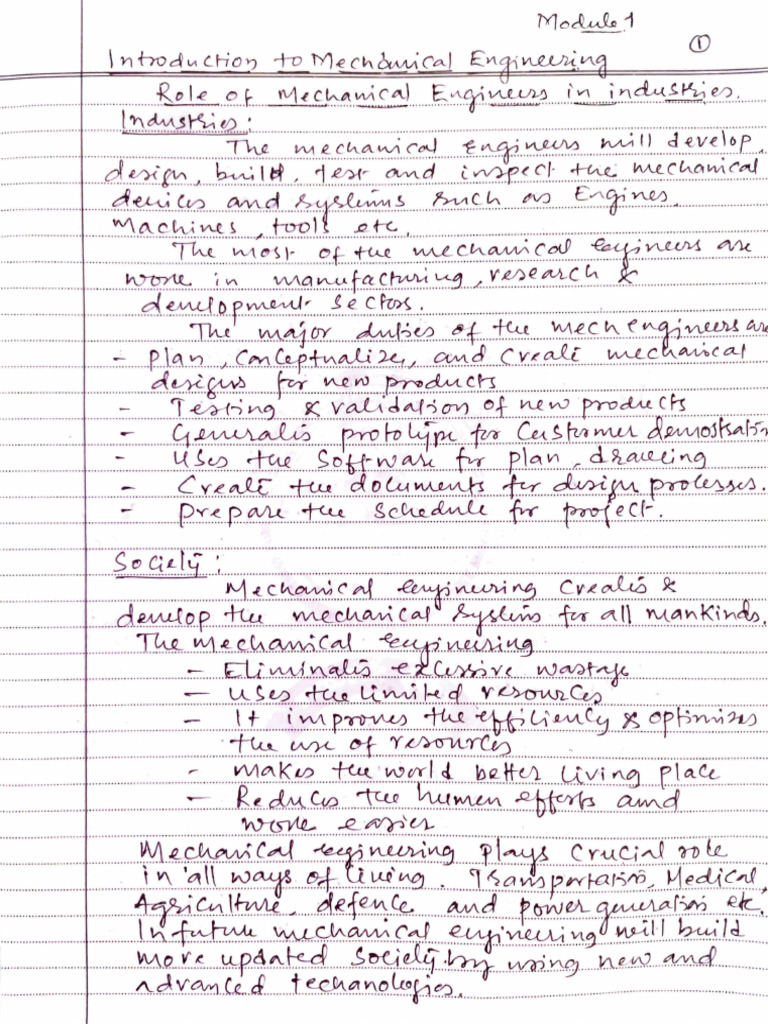 Module 1
①
Introduction to Mechanical Engineering
Role of Mechanical Engineers in industries.
Industries:
The mechanical engineers will develop,
design, build, test and inspect the mechanical
devices and systems such as Engines,
Machines, tools etc.
The most of the mechanical engineers are
work in manufacturing, research &
development sectors.
The major duties of the mech engineers are
- Plan, conceptualize, and create mechanical
designs for new products
- Testing & validation of new products
- Generates prototype for customer demostration
- Uses the software for plan, drawing
- Create the documents for design processes.
- Prepare the schedule for project.
Society:
Mechanical engineering creates &
develop the mechanical systems for all mankinds.
The mechanical engineering
- Eliminates excessive wastage
- Uses the limited resources
- It improves the efficiency & optimizes
the use of resources
- makes the world better living place
- Reduces the human efforts amd
work easier
Mechanical engineering plays crucial role
in all ways of living. Transportation, Medical,
Agriculture, defence and power generation etc.
In future mechanical engineering will build
more updated society by using new and
advanced techanologies.